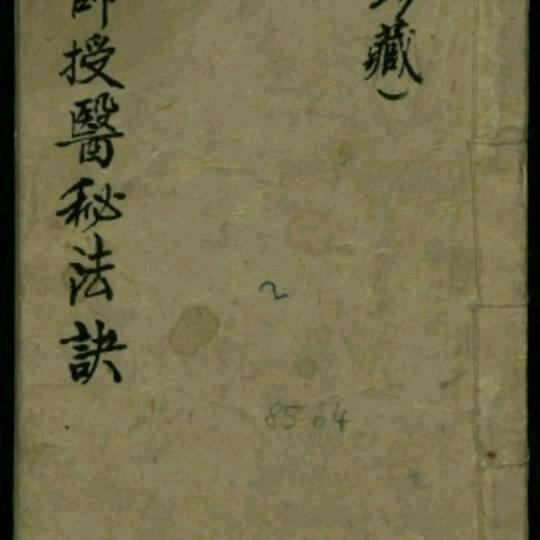 藏）
師授醫秘法訣
2
8564